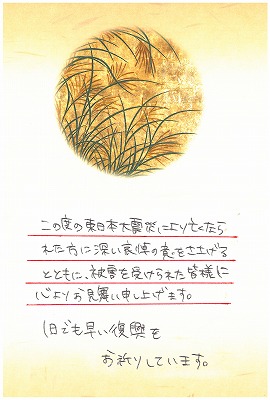 この度の東日本大震災により亡くなら
れた方に深い哀悼の意をささげる
とともに、被害を受けられた皆様に
心よりお見舞い申し上げます。
1日でも早い復興を
お祈りしています。